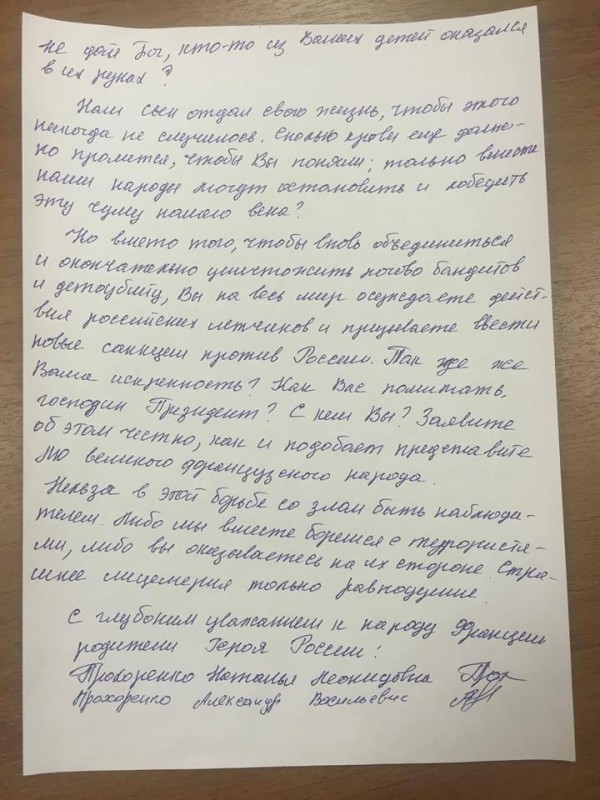 не дай Бог, кто-то из Ваших детей оказался
в их руках?
Наш сын отдал свою жизнь, чтобы этого
никогда не случилось. Сколько крови еще долж-
но пролиться, чтобы Вы поняли; только вместе
наши народы могут остановить и победить
эту чуму нашего века?
Но вместо того, чтобы вновь объединиться
и окончательно уничтожить логово бандитов
и детоубийц, Вы на весь мир осуждаете дейст-
вия российских летчиков и призываете ввести
новые санкции против России. Так где же
Ваша искренность? Как Вас понимать,
господин Президент? С кем Вы? Заявите
об этом честно, как и подобает представите
лю великого французского народа.
Нельзя в этой борьбе со злом быть наблюда-
телем. Либо мы вместе боремся с террориста-
ми, либо вы оказываетесь на их стороне. Стра-
шнее лицемерия только равнодушие.
С глубоким уважением к народу Франции
родители Героя России:
Прохоренко Наталья Леонидовна
Прохоренко Александр Васильевич